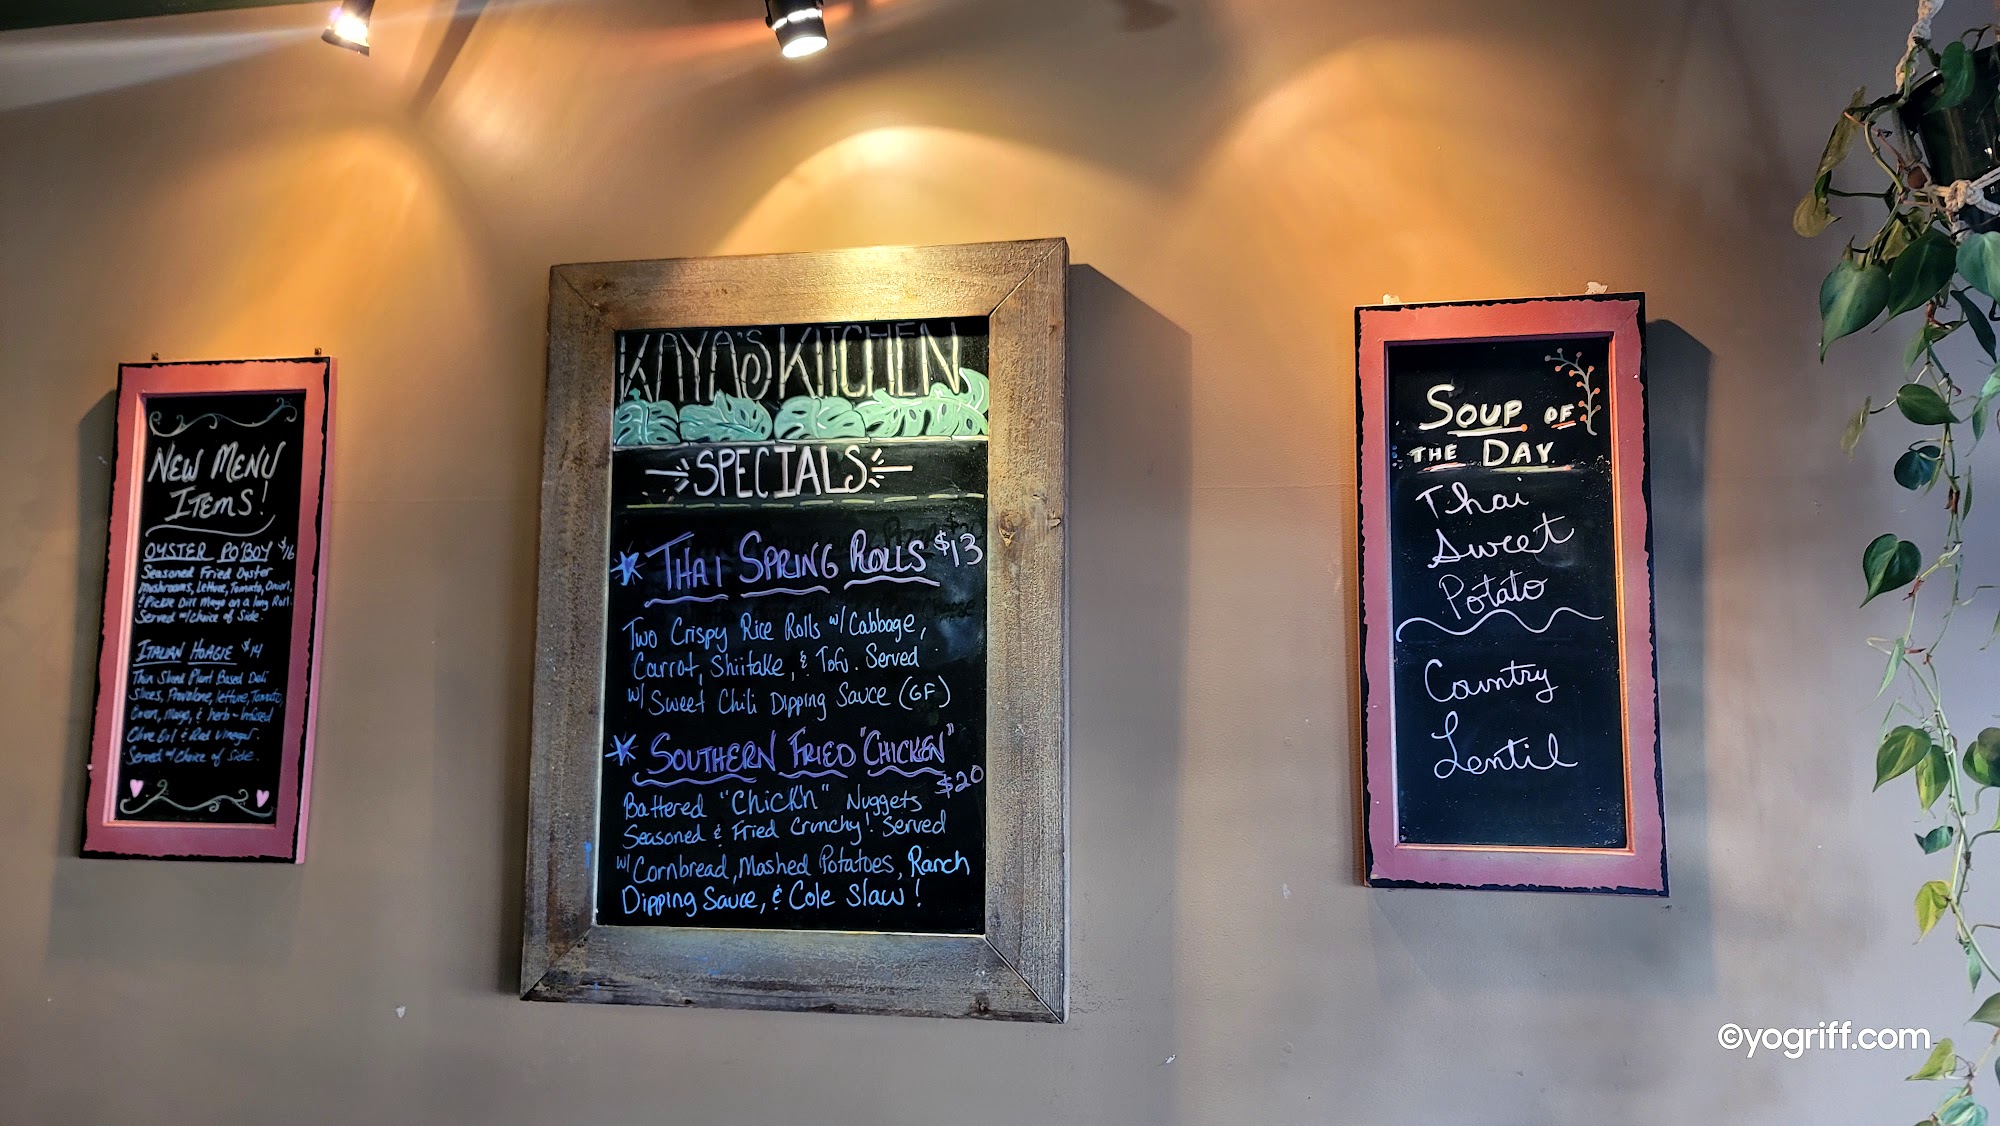 NEW MENU
ITEMS!
OYSTER PO'BOY $16
Seasoned Fried Oyster
Mushrooms, Lettuce, Tomato, Onion,
& Pickle Dill Mayo on a long Roll.
Served w/ Choice of Side.
ITALIAN HOAGIE $14
Thin Sliced Plant Based Deli
Slices, Provolone, lettuce, Tomato,
Onion, Mayo, & herb-infused
Olive Oil & Red Vinegar.
Served w/ Choice of Side.
KAYA'S KITCHEN
SPECIALS
THAI SPRING ROLLS $13
Two Crispy Rice Rolls w/ Cabbage,
Carrot, Shiitake, & Tofu. Served
w/ Sweet Chili Dipping Sauce (GF)
SOUTHERN FRIED "CHICKEN"
$20
Battered "Chick'n" Nuggets
Seasoned & Fried Crunchy! Served
w/ Cornbread, Mashed Potatoes, Ranch
Dipping Sauce, & Cole Slaw!
SOUP OF
THE DAY
Thai
Sweet
Potato
Country
Lentil
©yogriff.com